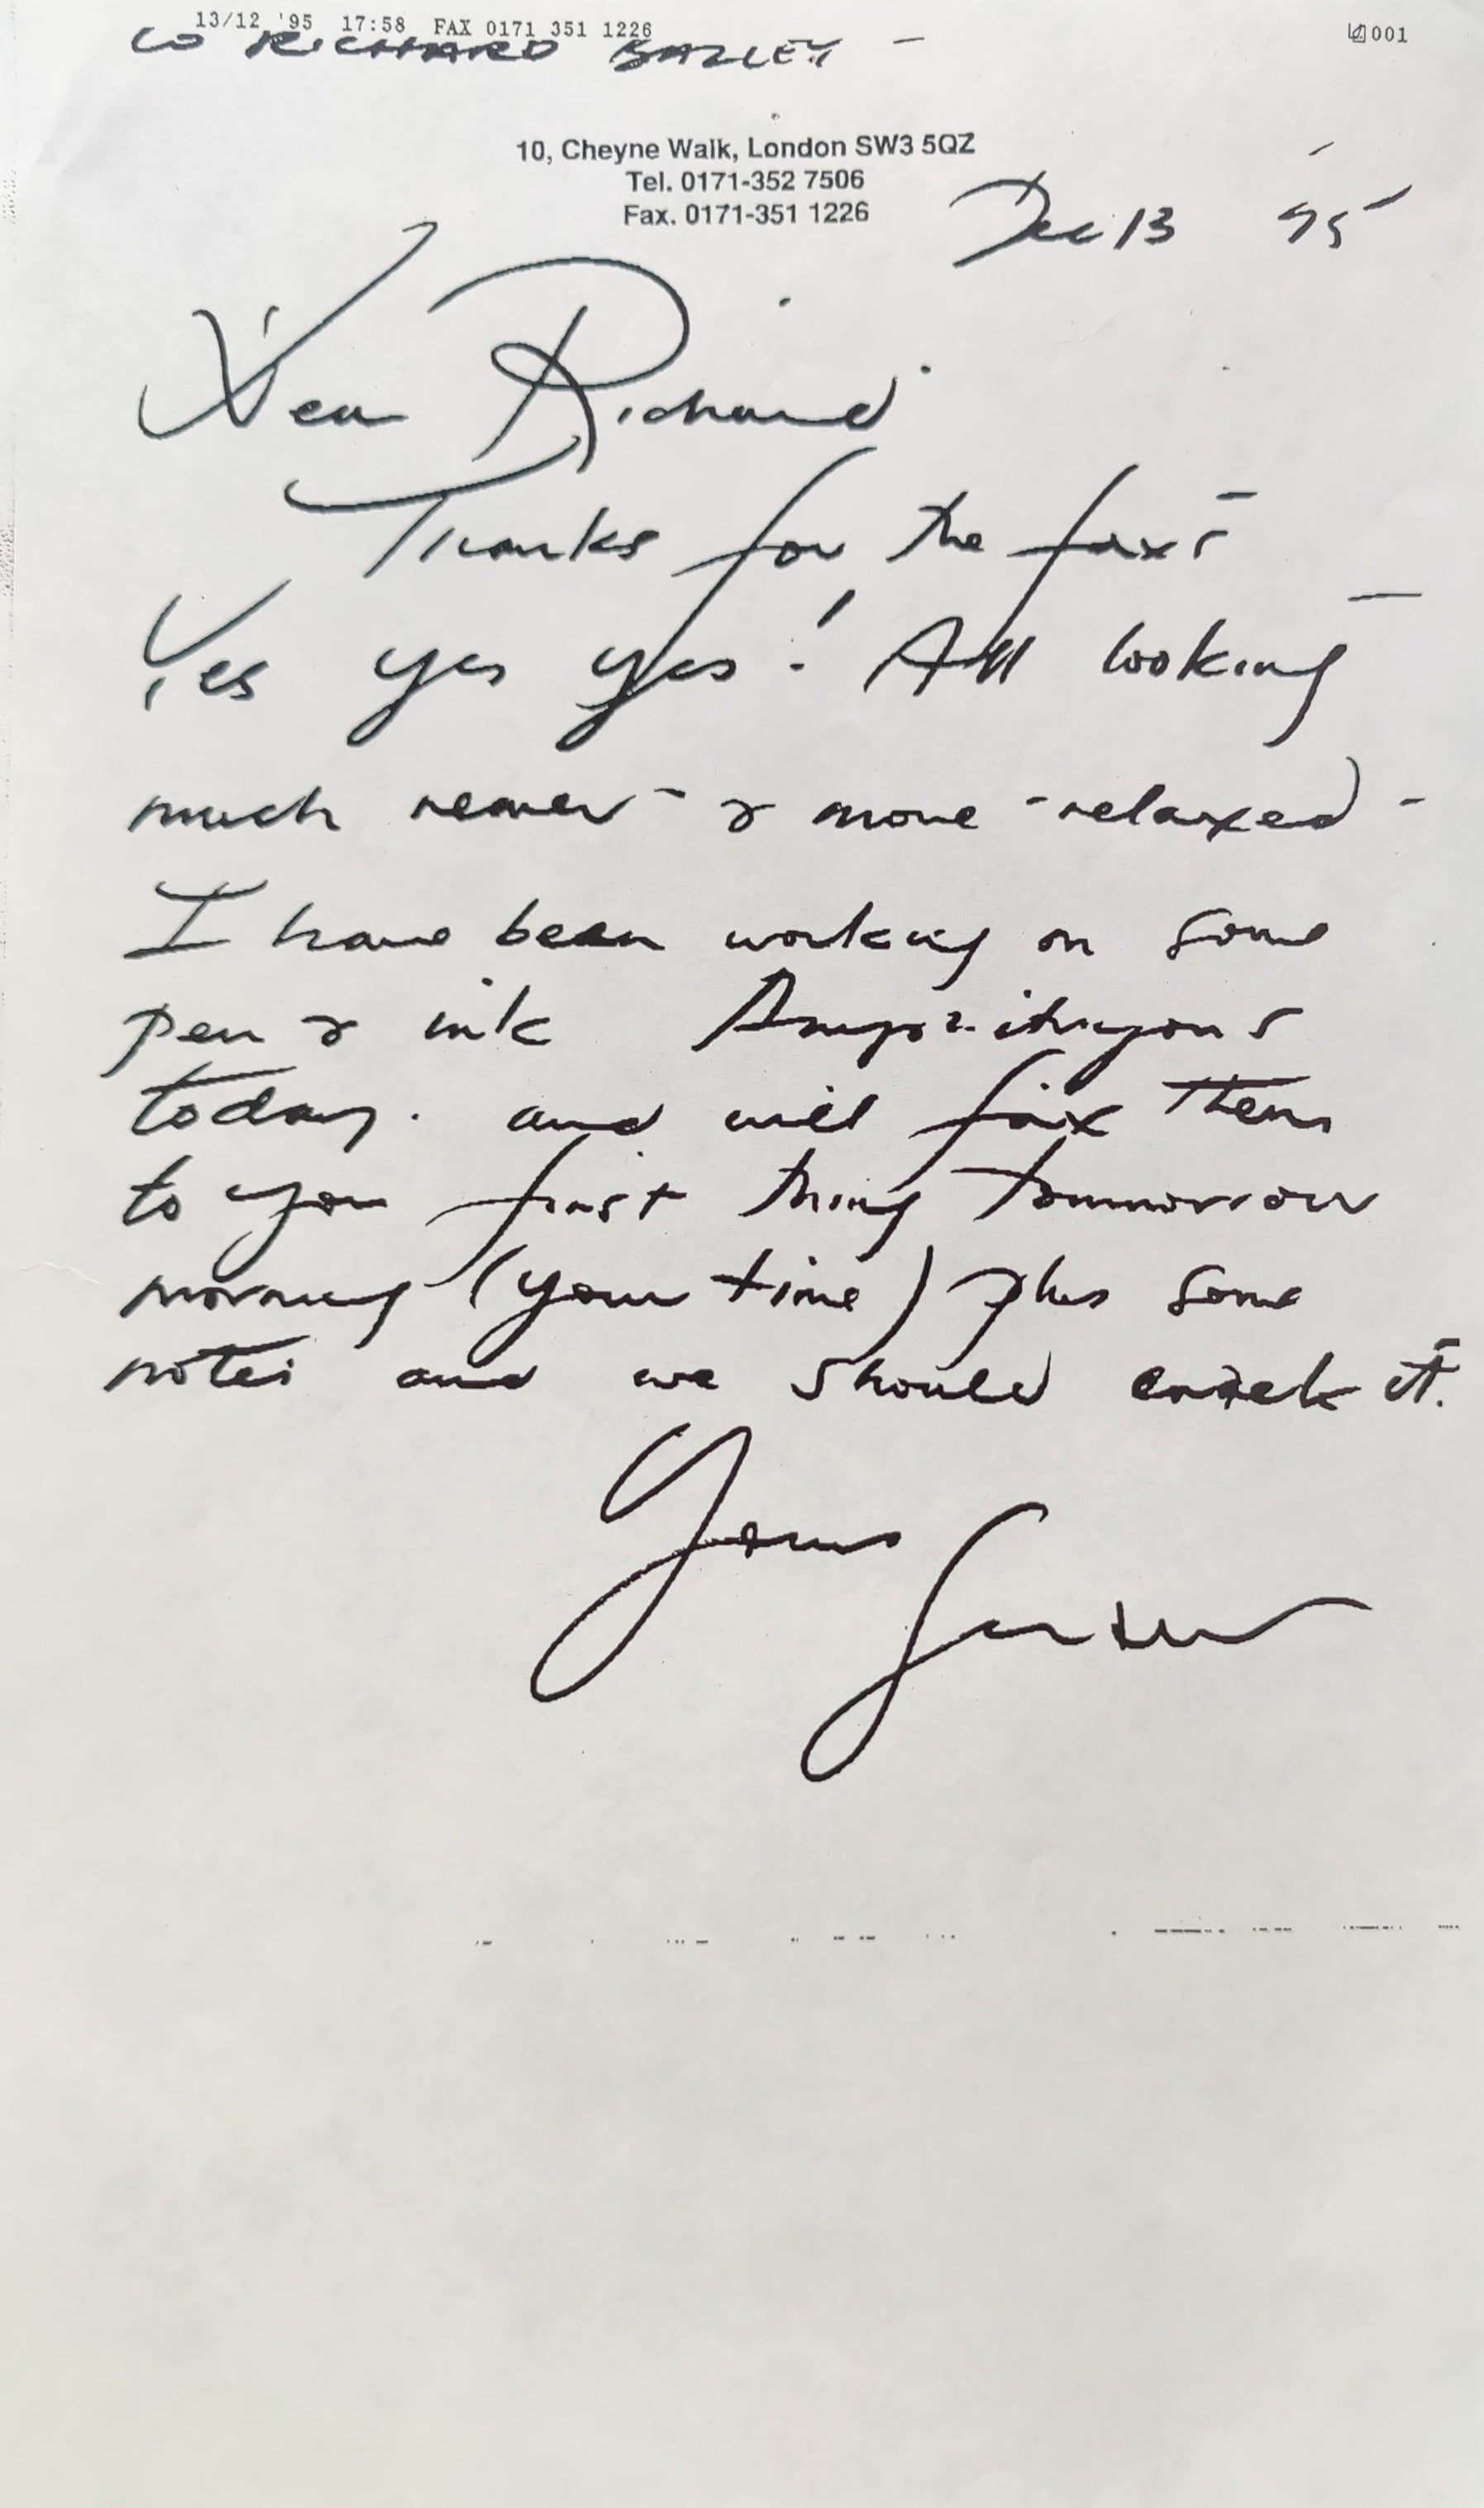 13/12 '95 17:58 FAX 0171 351 1226 001
RICHARD BAILEY -
10, Cheyne Walk, London SW3 5QZ
Tel. 0171-352 7506
Fax. 0171-351 1226
Dec 13 95
Dear Richard
Thanks for the faxs
Yes yes yes! All looking
much nearer - & more relaxed -
I have been working on some
pen & ink
today. and will fax them
to you first thing tommorrow
morning (your time) plus some
notes and we should crack it.
Yours